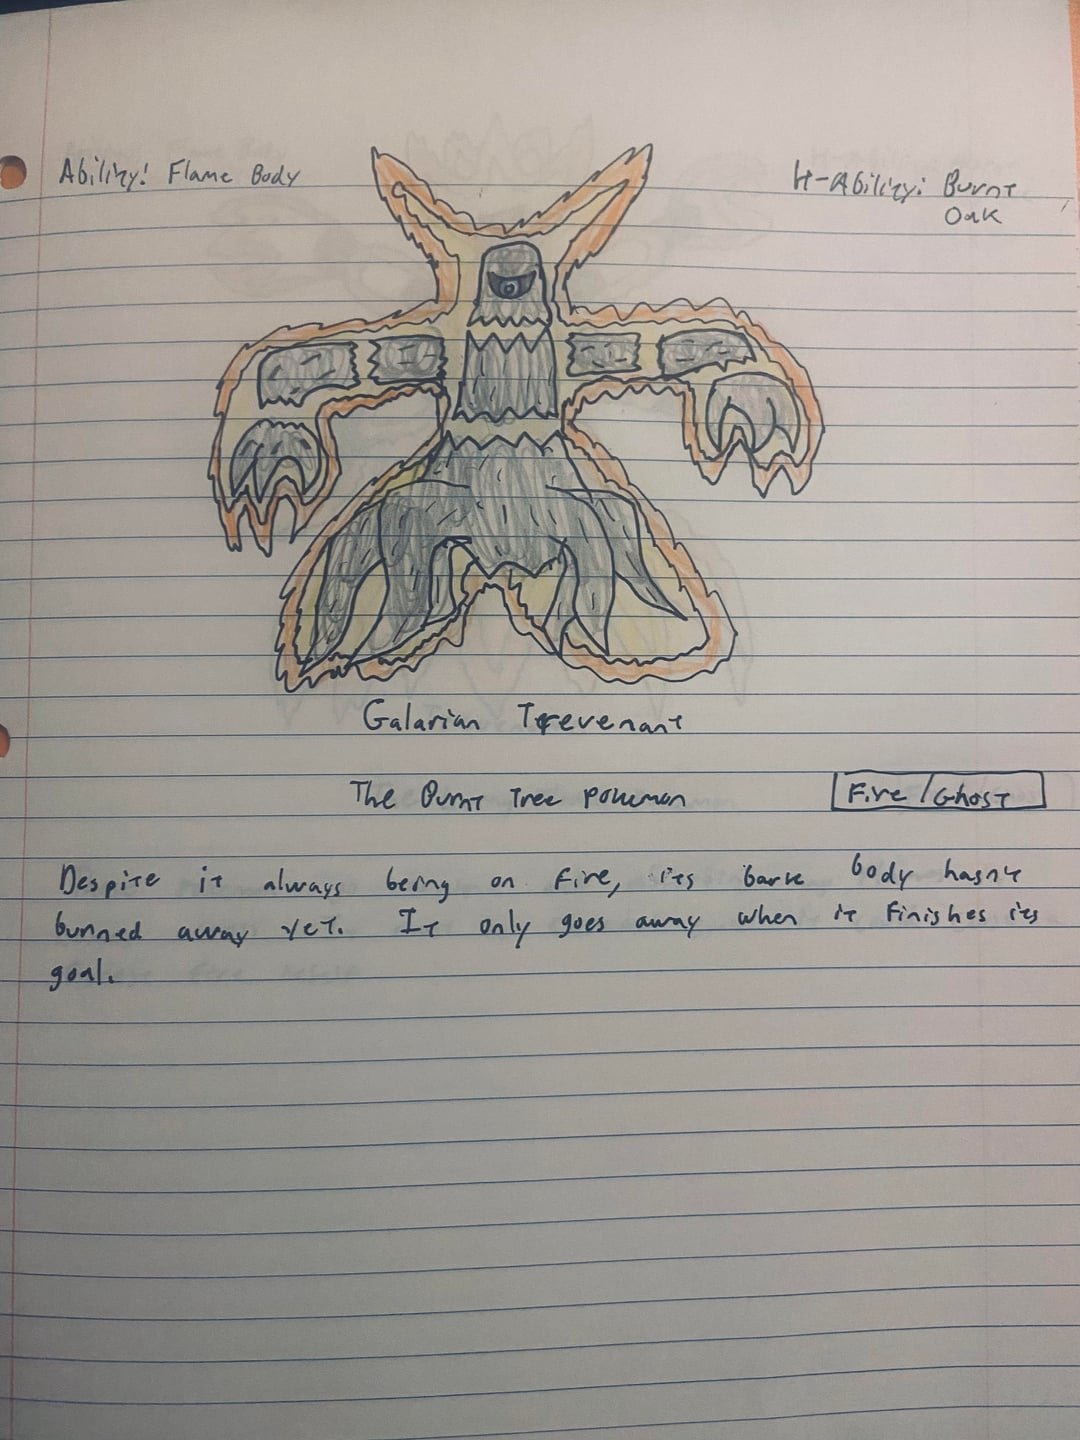 Ability: Flame Body
H-Ability: Burnt
Oak
Galarian Trevenant
The Burnt Tree Pokemon
Fire/Ghost
Despite it always being on fire, its bark body hasn't
bunned away yet. It only goes away when it finishes its
goal.